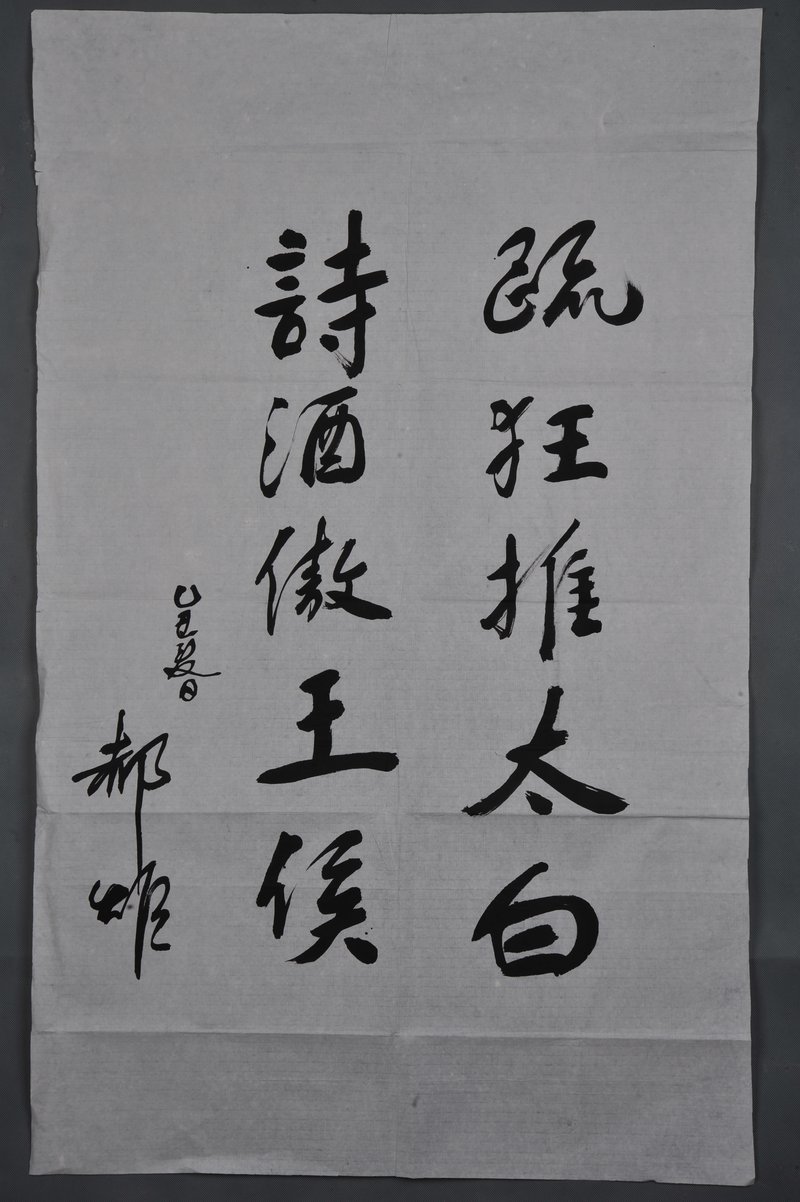 疏狂推太白
詩酒傲王侯
夏日
郝雄